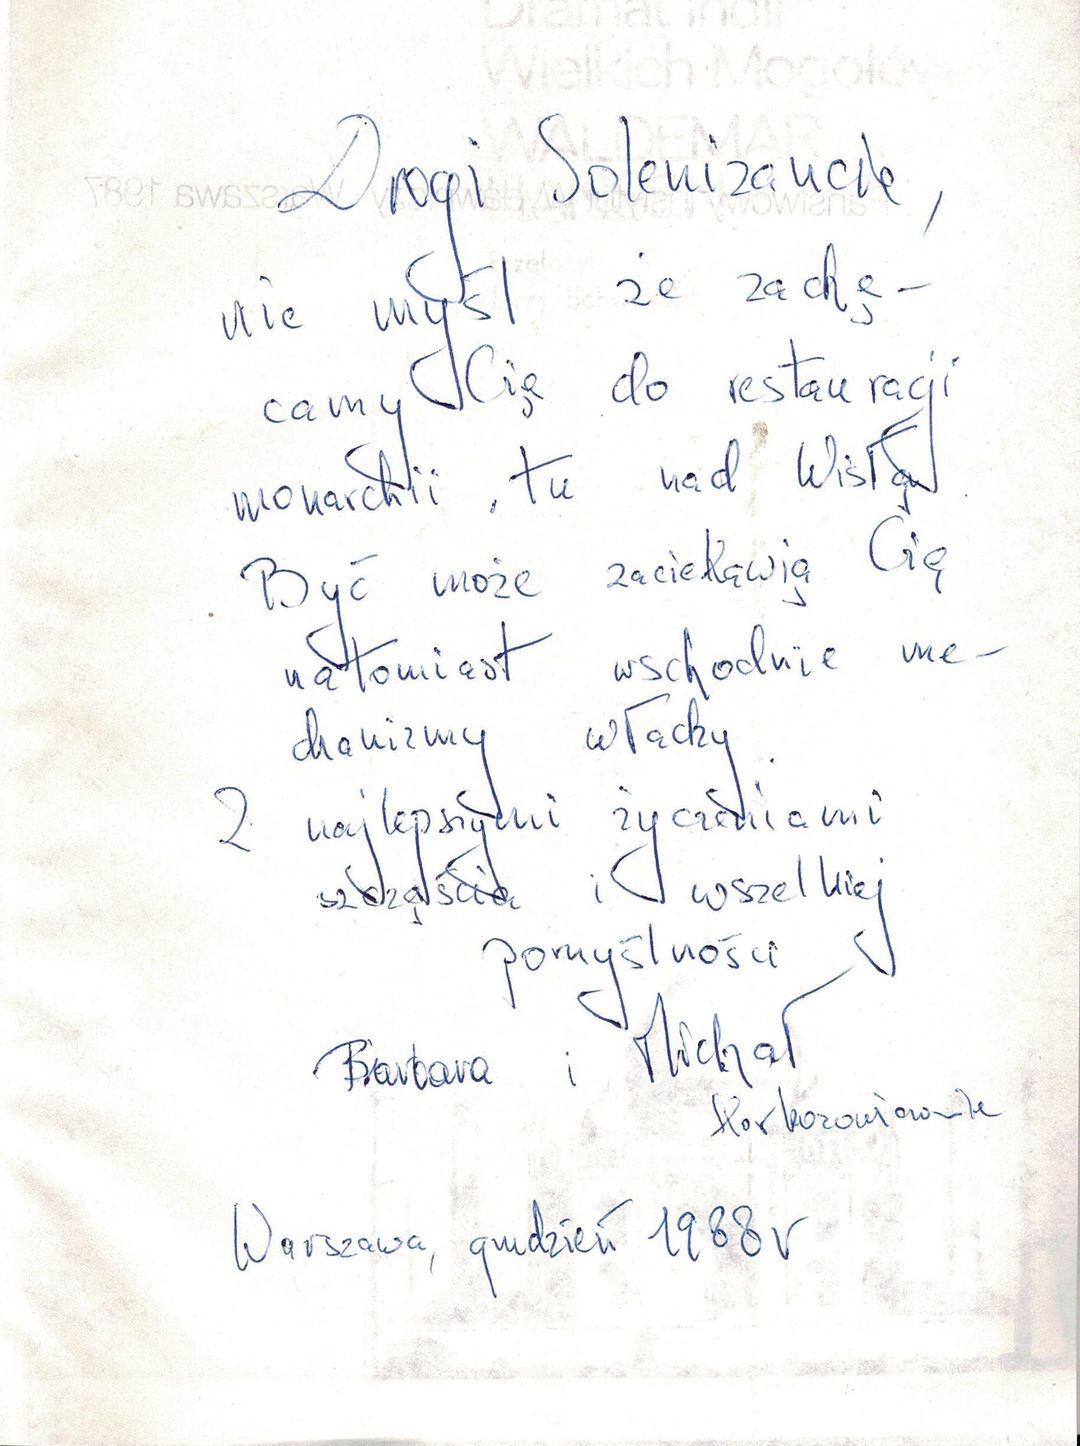 Dramat Indii
Wielkich Mogołów
WALDEMAR
Państwowy Instytut Wydawniczy Warszawa 1987
Drogi Solenizancie,
nie myśl że zachę-
camy Cię do restauracji
monarchii, tu nad Wisłą.
Być może zaciekawią Cię
natomiast wschodnie me-
chanizmy władzy.
Z najlepszymi życzeniami
szczęścia i wszelkiej
pomyślności
Barbara i Michał
Warszawa, grudzień 1988 r